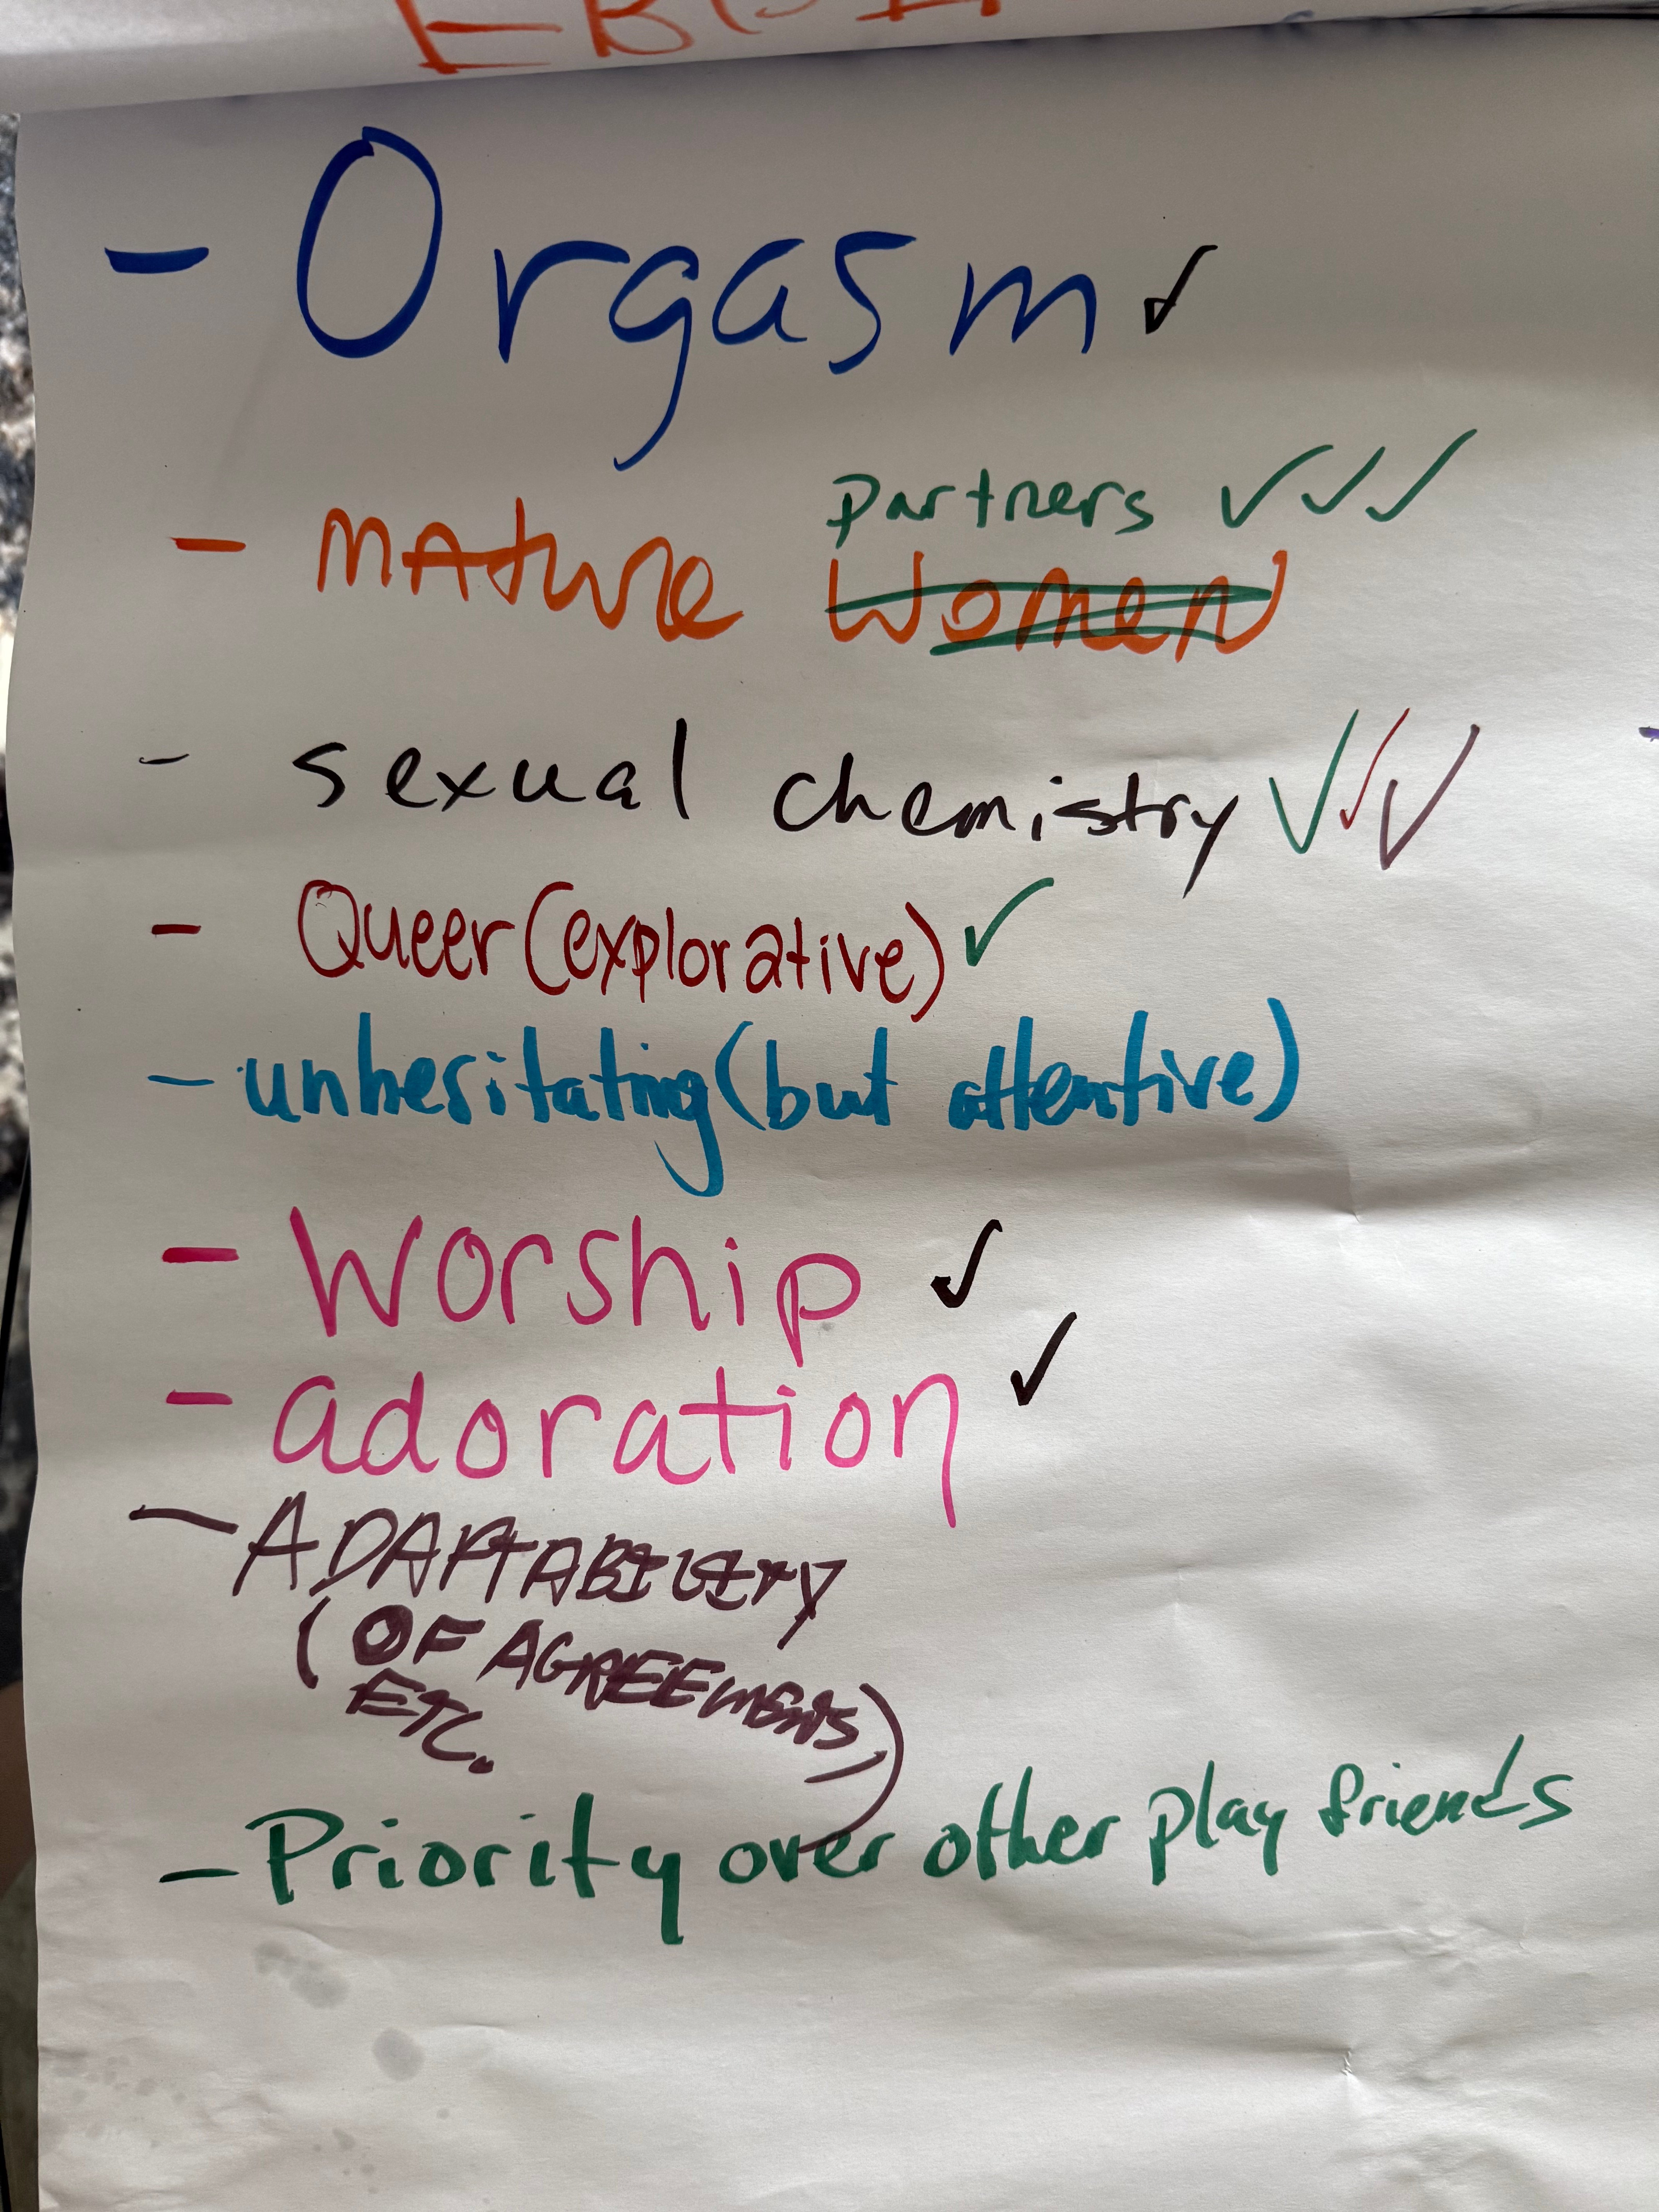 - Orgasm ✓
partners ✓✓✓
- MAture Women
- sexual chemistry ✓✓✓
- Queer (explorative) ✓
- unhesitating (but attentive)
- Worship ✓
- adoration ✓
- ADAPTABILITY
(OF AGREEMENTS,
ETC.)
- Priority over other play friends